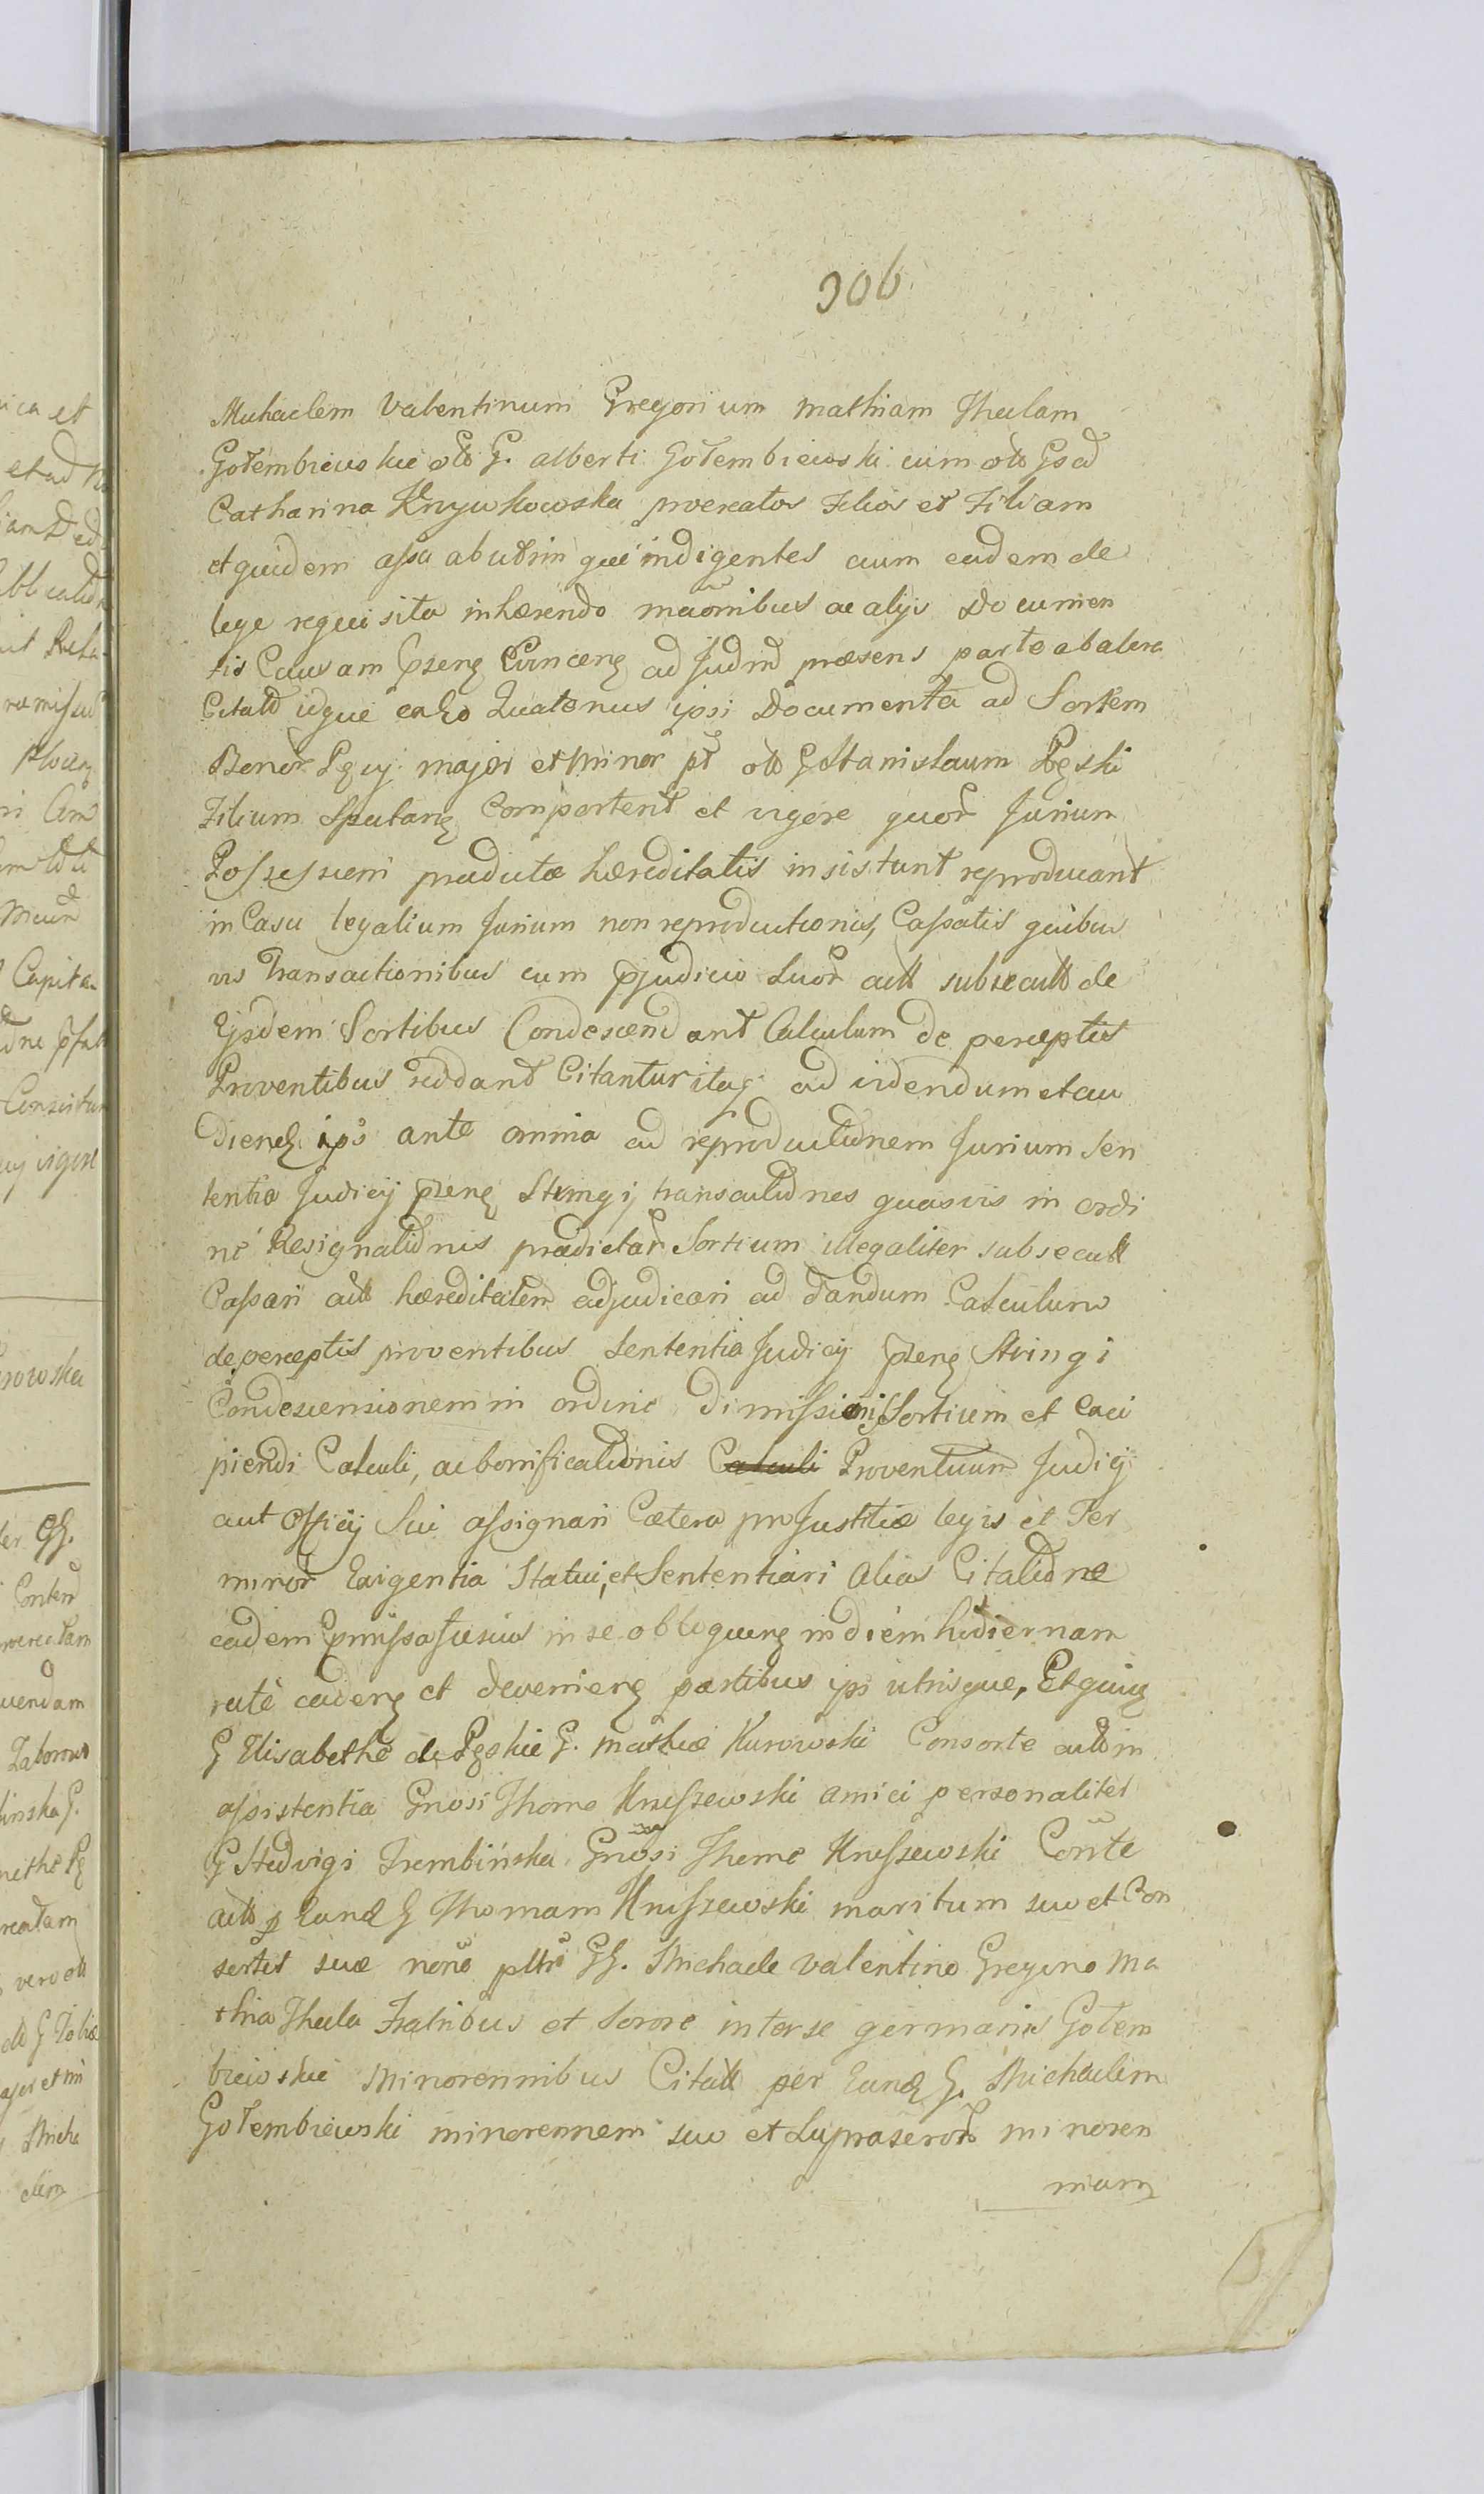 306
Michaelem Valentinum Gregorium Mathiam Theclam
Gołembiewskie olo G. Alberti Gołembiewski cum olo Gsa
Catharina Krzywkowska procreatos Filios et Filiam
et quidem assa ab utrin que indigentes cum eadem de
lege requisita inhærendo maonibus ac alijs Documen
tis Causam Pzeng ad Judm præsens parte ab altera
Citato idque eaho Quatenus ipsi Documenta ad Sortem
Bonor Pęcij major et minor pt olo G Stanislaum Pęski
Filium Spectang Comportent et vigore quor Jurium
Possessuem prædictæ hæreditatis insistunt reproducant
in Casu legalium Jurium non reproductionis, Cassatis quibus
vis Transactionibus cum pjudicio Suor actt subsecutt de
Ejsdem Sortibus Condescendant Calculum de perceptis
Proventibus reddant Citantur itaq ad videndum et au
diend ips ante omnia ad reproductionem Jurium Sen
tentia Judicij pzeng Stringj transactiones quasvis in ordi
ne Resignationis prædictar Sortium illegaliter subsecutt
Cassari actt hæreditatem adjudicari ad dandum Calculum
de perceptis proventibus Sententia Judicij pzeng Stringi
Condescensionem in ordine Dimissionis Sortium et Exci
piendi Calculi, ac bonificationis Calculi Proventuum Judicij
aut Officij Sui assignari Cætera pro Justitiæ legis et Ter
minor Exigentia Statui, et Sententiari Alias Citatione
eadem pmissa fusius in se obloqueng in diem hodiernam
rite cadeng et devenieng partibus ips utrisque, Et quidem
G Elisabethe de Pęskie G. Mathiæ Kurowski Consorte actto in
assistentia Gnosi Thome Kniszewski amici personaliter
G Hedvigi Trembińska Gnosi Thome Kniszewski Conte
actto p Eund G Thomam Kniszewski maritum suo et Con
sortis suæ none pltti GG. Michaele Valentino Gregorio Ma
thia Thecla Fratribus et Sorore inter se germanis Gołem
biewskie Minorennibus Citatt per Eund G. Michaelem
Gołembiewski minorennem suo et Supraseror minoren
nium